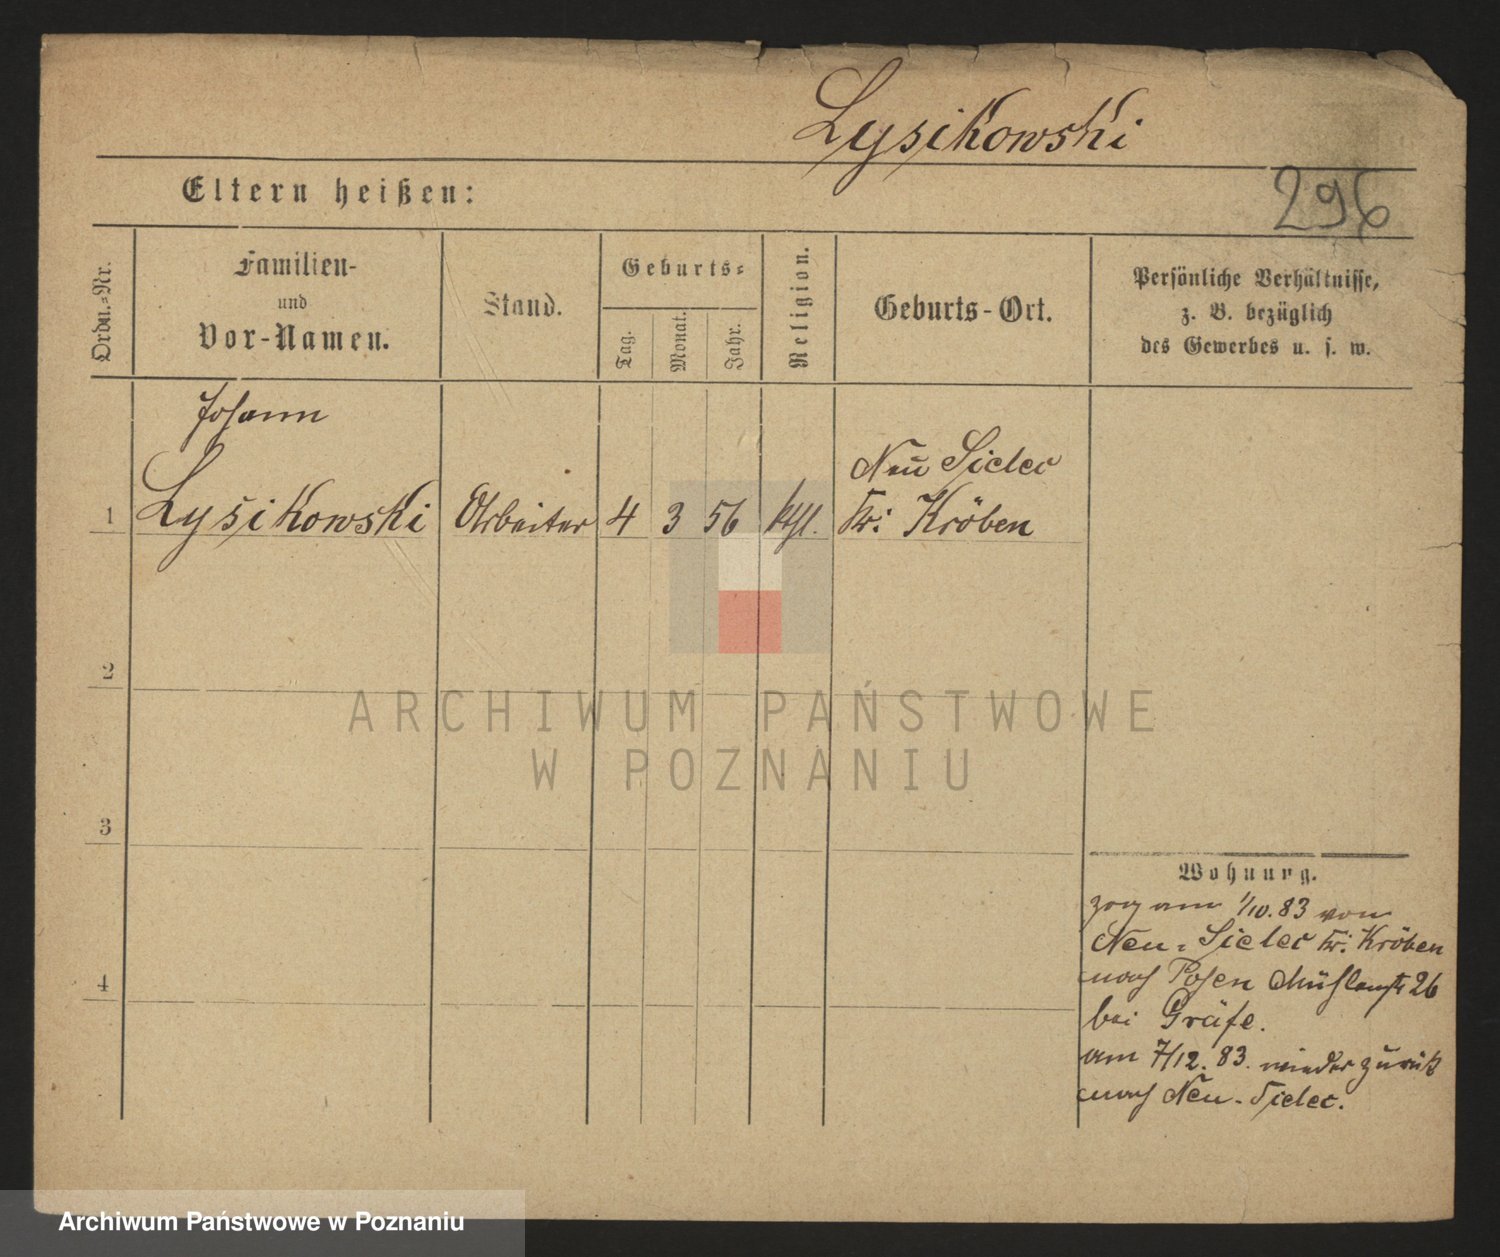 Lysikowski
296
Eltern heißen:
Ordn.=Nr.
Familien-
und
Vor-Namen.
Stand.
Geburts=
Tag.
Monat.
Jahr.
Religion.
Geburts-Ort.
Persönliche Verhältnisse,
z. B. bezüglich
des Gewerbes u. s. w.
Johann
1 Lysikowski Arbeiter 4 3 56 kth. Neu Sielec
Kr: Kröben
2
3
4
Wohnung.
zog am 1/10. 83 von
Neu-Sielec Kr: Kröben
nach Posen Mühlenstr 26
bei Gräfe.
am 7/12. 83. wieder zurück
nach Neu-Sielec.
ARCHIWUM PAŃSTWOWE
W POZNANIU
Archiwum Państwowe w Poznaniu